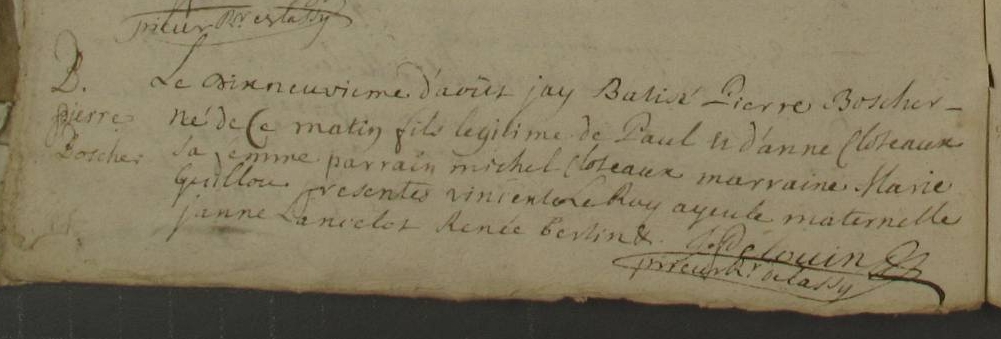 prieur Rr de lassy
B. Le dixneuvieme d'août jay Batisé Pierre Boscher
pierre né de Ce matin fils legitime de Paul et d'anne Cloteaux
Boscher sa femme parrain michel Cloteaux marraine Marie
Guillou presentes vincente Le Roy ayeule maternelle
janne Lancelot Renée Berlin &
Delouin
prieur Rr de lassy